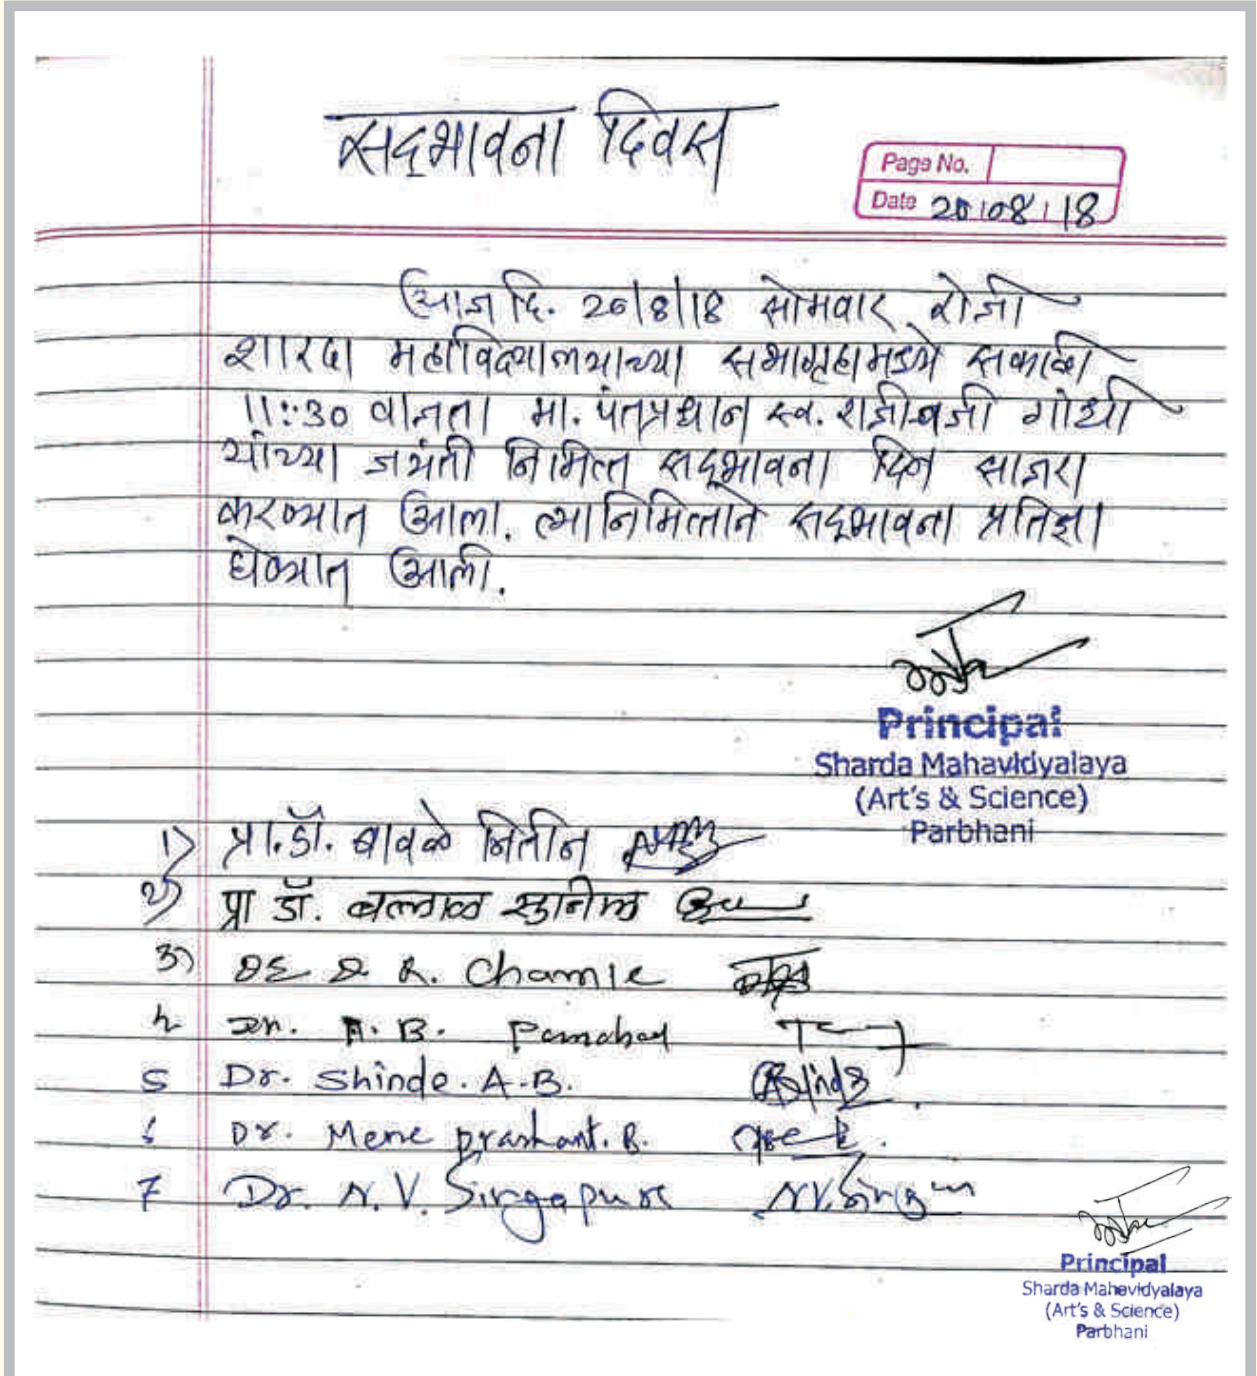 सद्भावना दिवस
Page No.
Date 20/08/18
आज दि. 20/8/18 सोमवार रोजी
शारदा महाविद्यालयाच्या सभागृहामध्ये सकाळी
11:30 वाजता मा. पंतप्रधान स्व. राजीवजी गांधी
यांच्या जयंती निमित्त सद्भावना दिन साजरा
करण्यात आला. त्यानिमित्ताने सद्भावना प्रतिज्ञा
घेण्यात आली.
Principal
Sharda Mahavidyalaya
(Art's & Science)
Parbhani
1) प्रा.डॉ. बावळे नितीन
2) प्रा डॉ. बल्लाळ सुनिल
3) R. Chamle
A. B.
5 Dr. Shinde. A.B.
6 Dr. Mene prashant. B.
7 Dr. N. V. Sirgapure N.V.
Principal
Sharda Mahavidyalaya
(Art's & Science)
Parbhani